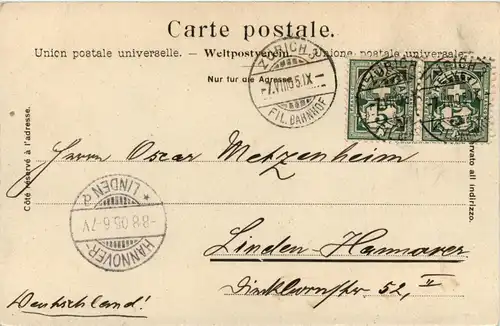 Carte postale.
Union postale universelle. – Weltpostverein. – Unione postale universale.
Nur für die Adresse.
ZÜRICH 3
-7.VIII.05.IX-
FIL. BAHNHOF
ZÜRICH
5
5
Côté réservé à l'adresse.
Herrn Oscar Metzenheim
Linden-Hannover
II
Deutschland!
HANNOVER-
* LINDEN
-8.8.05.6-7V
all indirizzo.